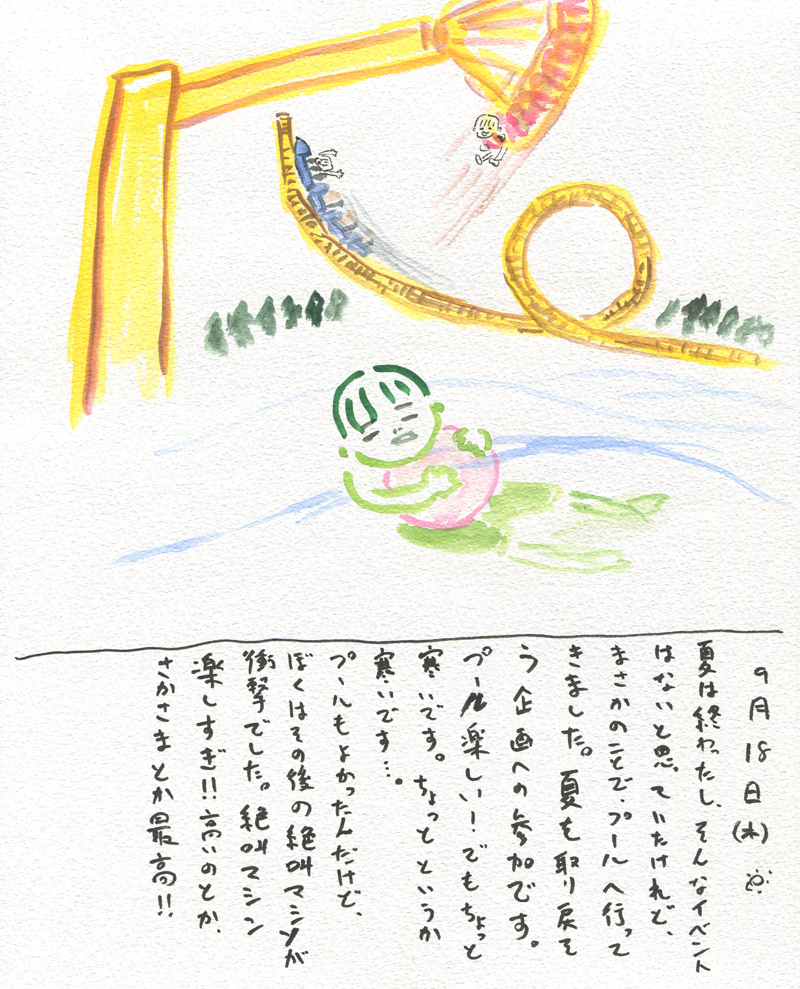 9月18日(木)
夏は終わったし、そんなイベント
はないと思っていたけれど、
まさかのことで、プールへ行って
きました。夏を取り戻そ
う企画への参加です。
プール楽しい!でもちょっと
寒いです。ちょっとというか
寒いです…。
プールもよかったんだけど、
ぼくはその後の絶叫マシンが
衝撃でした。絶叫マシン
楽しすぎ!!高いのとか、
さかさまとか最高!!